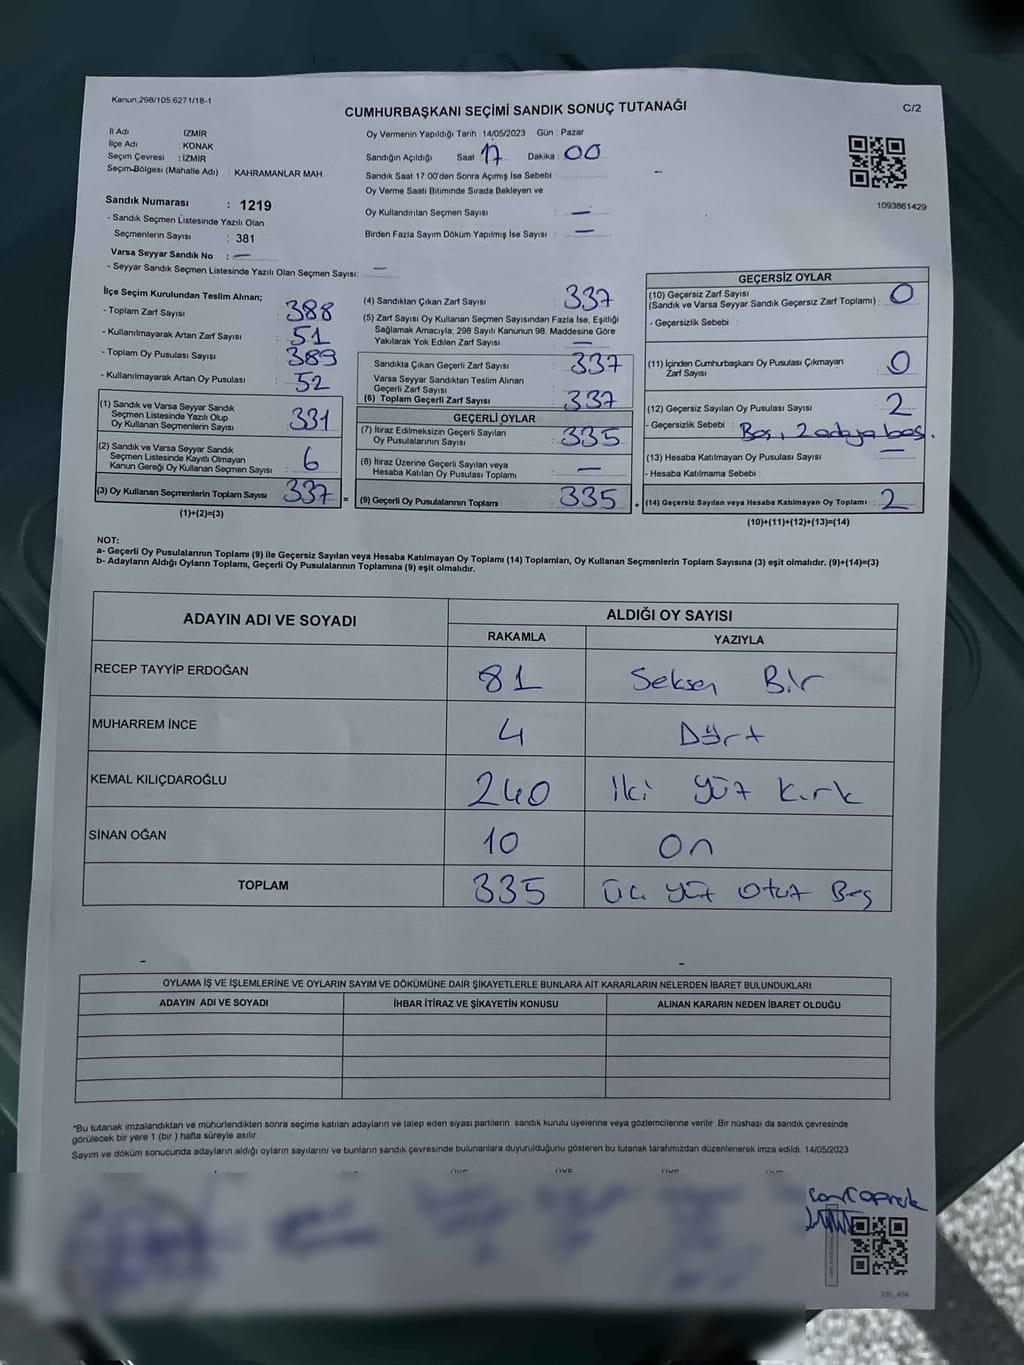 Kanun.298/105.6271/18-1
CUMHURBAŞKANI SEÇİMİ SANDIK SONUÇ TUTANAĞI
C/2
İl Adı : İZMİR
İlçe Adı : KONAK
Seçim Çevresi : İZMİR
Seçim Bölgesi (Mahalle Adı) : KAHRAMANLAR MAH.
Oy Vermenin Yapıldığı Tarih : 14/05/2023 Gün : Pazar
Sandığın Açıldığı Saat 17 Dakika : 00
Sandık Saat 17:00'den Sonra Açımış İse Sebebi :
Oy Verme Saati Bitiminde Sırada Bekleyen ve
Oy Kullandırılan Seçmen Sayısı : —
Birden Fazla Sayım Döküm Yapılmış İse Sayısı : —
1093861429
Sandık Numarası : 1219
- Sandık Seçmen Listesinde Yazılı Olan
Seçmenlerin Sayısı : 381
Varsa Seyyar Sandık No : —
- Seyyar Sandık Seçmen Listesinde Yazılı Olan Seçmen Sayısı: —
İlçe Seçim Kurulundan Teslim Alınan;
- Toplam Zarf Sayısı : 388
- Kullanılmayarak Artan Zarf Sayısı : 51
- Toplam Oy Pusulası Sayısı : 389
- Kullanılmayarak Artan Oy Pusulası : 52
(1) Sandık ve Varsa Seyyar Sandık
Seçmen Listesinde Yazılı Olup
Oy Kullanan Seçmenlerin Sayısı : 331
(2) Sandık ve Varsa Seyyar Sandık
Seçmen Listesinde Kayıtlı Olmayan
Kanun Gereği Oy Kullanan Seçmen Sayısı : 6
(3) Oy Kullanan Seçmenlerin Toplam Sayısı 337 =
(1)+(2)=(3)
(4) Sandıktan Çıkan Zarf Sayısı : 337
(5) Zarf Sayısı Oy Kullanan Seçmen Sayısından Fazla İse, Eşitliği
Sağlamak Amacıyla; 298 Sayılı Kanunun 98. Maddesine Göre
Yakılarak Yok Edilen Zarf Sayısı : —
Sandıkta Çıkan Geçerli Zarf Sayısı : 337
Varsa Seyyar Sandıktan Teslim Alınan
Geçerli Zarf Sayısı :
(6) Toplam Geçerli Zarf Sayısı : 337
GEÇERLİ OYLAR
(7) İtiraz Edilmeksizin Geçerli Sayılan
Oy Pusulalarının Sayısı : 335
(8) İtiraz Üzerine Geçerli Sayılan veya
Hesaba Katılan Oy Pusulası Toplamı : —
(9) Geçerli Oy Pusulalarının Toplamı : 335 +
GEÇERSİZ OYLAR
(10) Geçersiz Zarf Sayısı
(Sandık ve Varsa Seyyar Sandık Geçersiz Zarf Toplamı) : 0
- Geçersizlik Sebebi :
(11) İçinden Cumhurbaşkanı Oy Pusulası Çıkmayan
Zarf Sayısı : 0
(12) Geçersiz Sayılan Oy Pusulası Sayısı : 2
- Geçersizlik Sebebi : Boş, 2 adaya bas.
(13) Hesaba Katılmayan Oy Pusulası Sayısı : —
- Hesaba Katılmama Sebebi :
(14) Geçersiz Sayılan veya Hesaba Katılmayan Oy Toplamı : 2
(10)+(11)+(12)+(13)=(14)
NOT:
a- Geçerli Oy Pusulalarının Toplamı (9) ile Geçersiz Sayılan veya Hesaba Katılmayan Oy Toplamı (14) Toplamları, Oy Kullanan Seçmenlerin Toplam Sayısına (3) eşit olmalıdır. (9)+(14)=(3)
b- Adayların Aldığı Oyların Toplamı, Geçerli Oy Pusulalarının Toplamına (9) eşit olmalıdır.
ADAYIN ADI VE SOYADI ALDIĞI OY SAYISI
RAKAMLA YAZIYLA
RECEP TAYYİP ERDOĞAN 81 Seksen Bir
MUHARREM İNCE 4 Dört
KEMAL KILIÇDAROĞLU 240 İki yüz kırk
SİNAN OĞAN 10 On
TOPLAM 335 üç yüz otuz Beş
OYLAMA İŞ VE İŞLEMLERİNE VE OYLARIN SAYIM VE DÖKÜMÜNE DAİR ŞİKAYETLERLE BUNLARA AİT KARARLARIN NELERDEN İBARET BULUNDUKLARI
ADAYIN ADI VE SOYADI İHBAR İTİRAZ VE ŞİKAYETİN KONUSU ALINAN KARARIN NEDEN İBARET OLDUĞU
*Bu tutanak imzalandıktan ve mühürlendikten sonra seçime katılan adayların ve talep eden siyasi partilerin sandık kurulu üyelerine veya gözlemcilerine verilir. Bir nüshası da sandık çevresinde
görülecek bir yere 1 (bir ) hafta süreyle asılır.
Sayım ve döküm sonucunda adayların aldığı oyların sayılarını ve bunların sandık çevresinde bulunanlara duyurulduğunu gösteren bu tutanak tarafımızdan düzenlenerek imza edildi. 14/05/2023